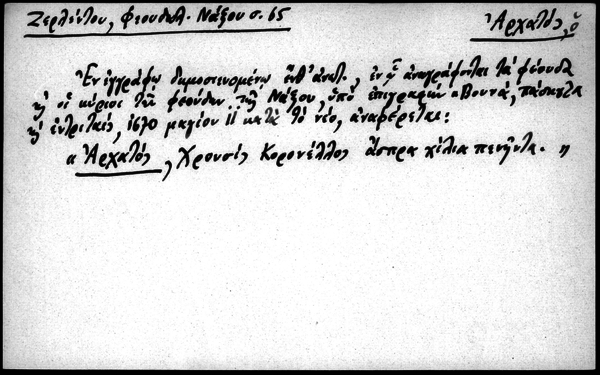 Ζερλέντου, Φεουδαλ. Νάξου σ. 65
Ἀρχατός, ὁ
Ἐν ἐγγράφῳ δημοσιευομένῳ ἔνθ' ἀνωτ., ἐν ᾧ ἀναγράφονται τὰ φέουδα
κ̀ οἱ κύριοι τῶν φεούδων τῆς Νάξου, ὑπὸ ἐπιγραφὴν «Βουνά, πάσκουλα
κ̀ ἐντριτιές, 1670 μαγίου 11 κατὰ τὸ νέο, ἀναφέρεται:
« Ἀρχατός, Χρουσῆς Κορονέλλος ἄσπρα χίλια πενῆντα. »